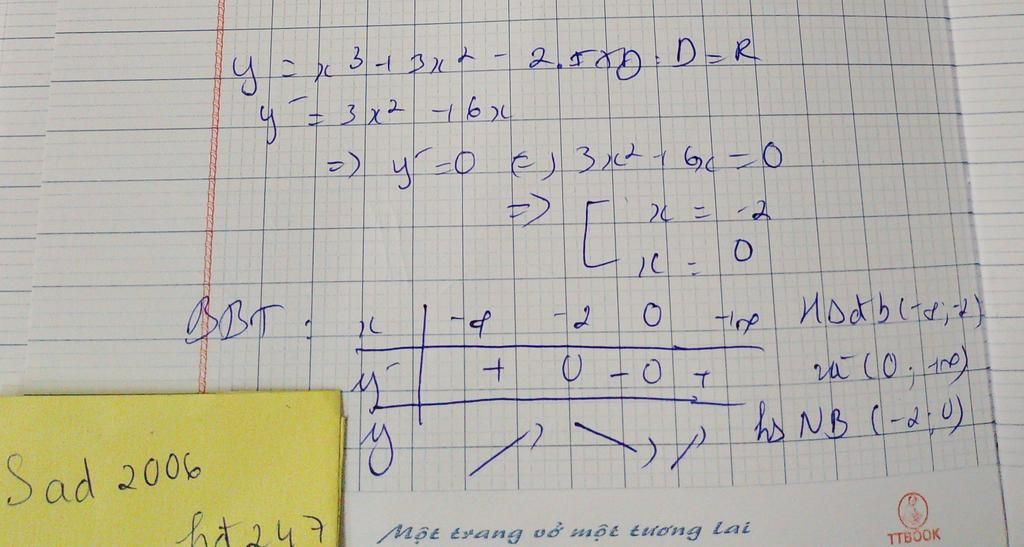 y = x³ + 3x² - 2. TXĐ: D = R
y' = 3x² + 6x
=> y' = 0 <=> 3x² + 6x = 0
=> [ x = -2
x = 0
BBT: x | -∞ -2 0 +∞ HSđb (-∞; -2)
y' | + 0 - 0 + và (0; +∞)
y ↗ ↘ ↗ hs NB (-2; 0)
Sad 2006
hđ247
Một trang vở một tương lai
TTBOOK